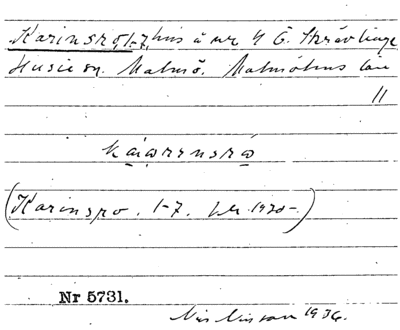 Karinsro 1-7, hus å nr 4 Ö. Skrävlinge
Husie sn. Malmö. Malmöhus län
11
(Karinsro. 1-7. 1920-)
Nr 5731.
Nils Nilsson 1936.